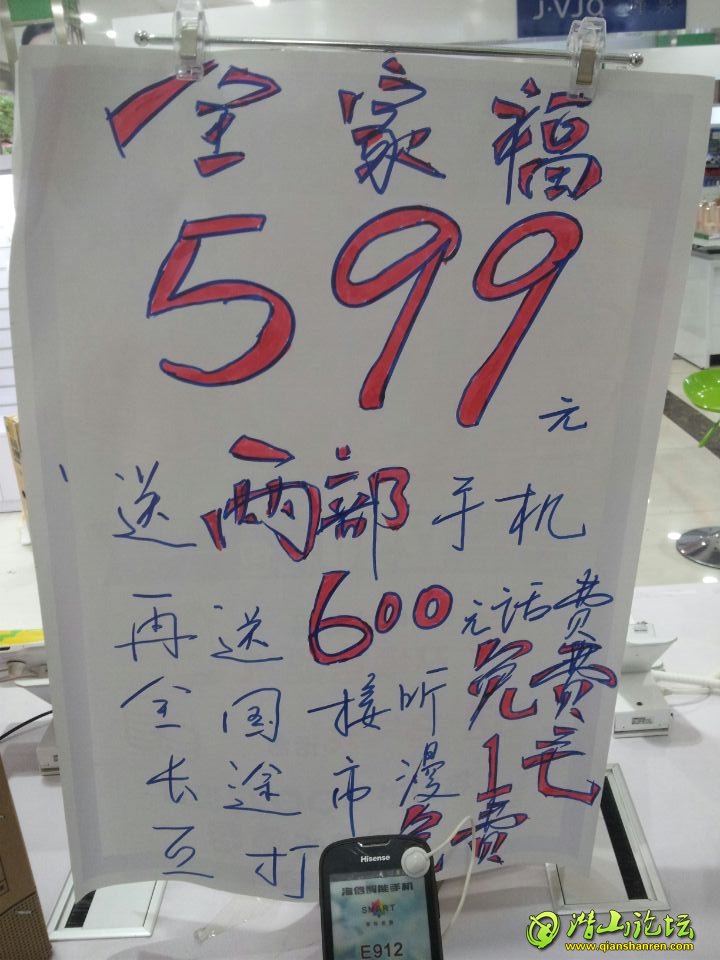 全家福
599
元
送两部手机
再送600元话费
全国接听免费
长途市漫1毛
互打免费
Hisense
海信智能手机
SMART
E912
潜山论坛
www.qianshanren.com